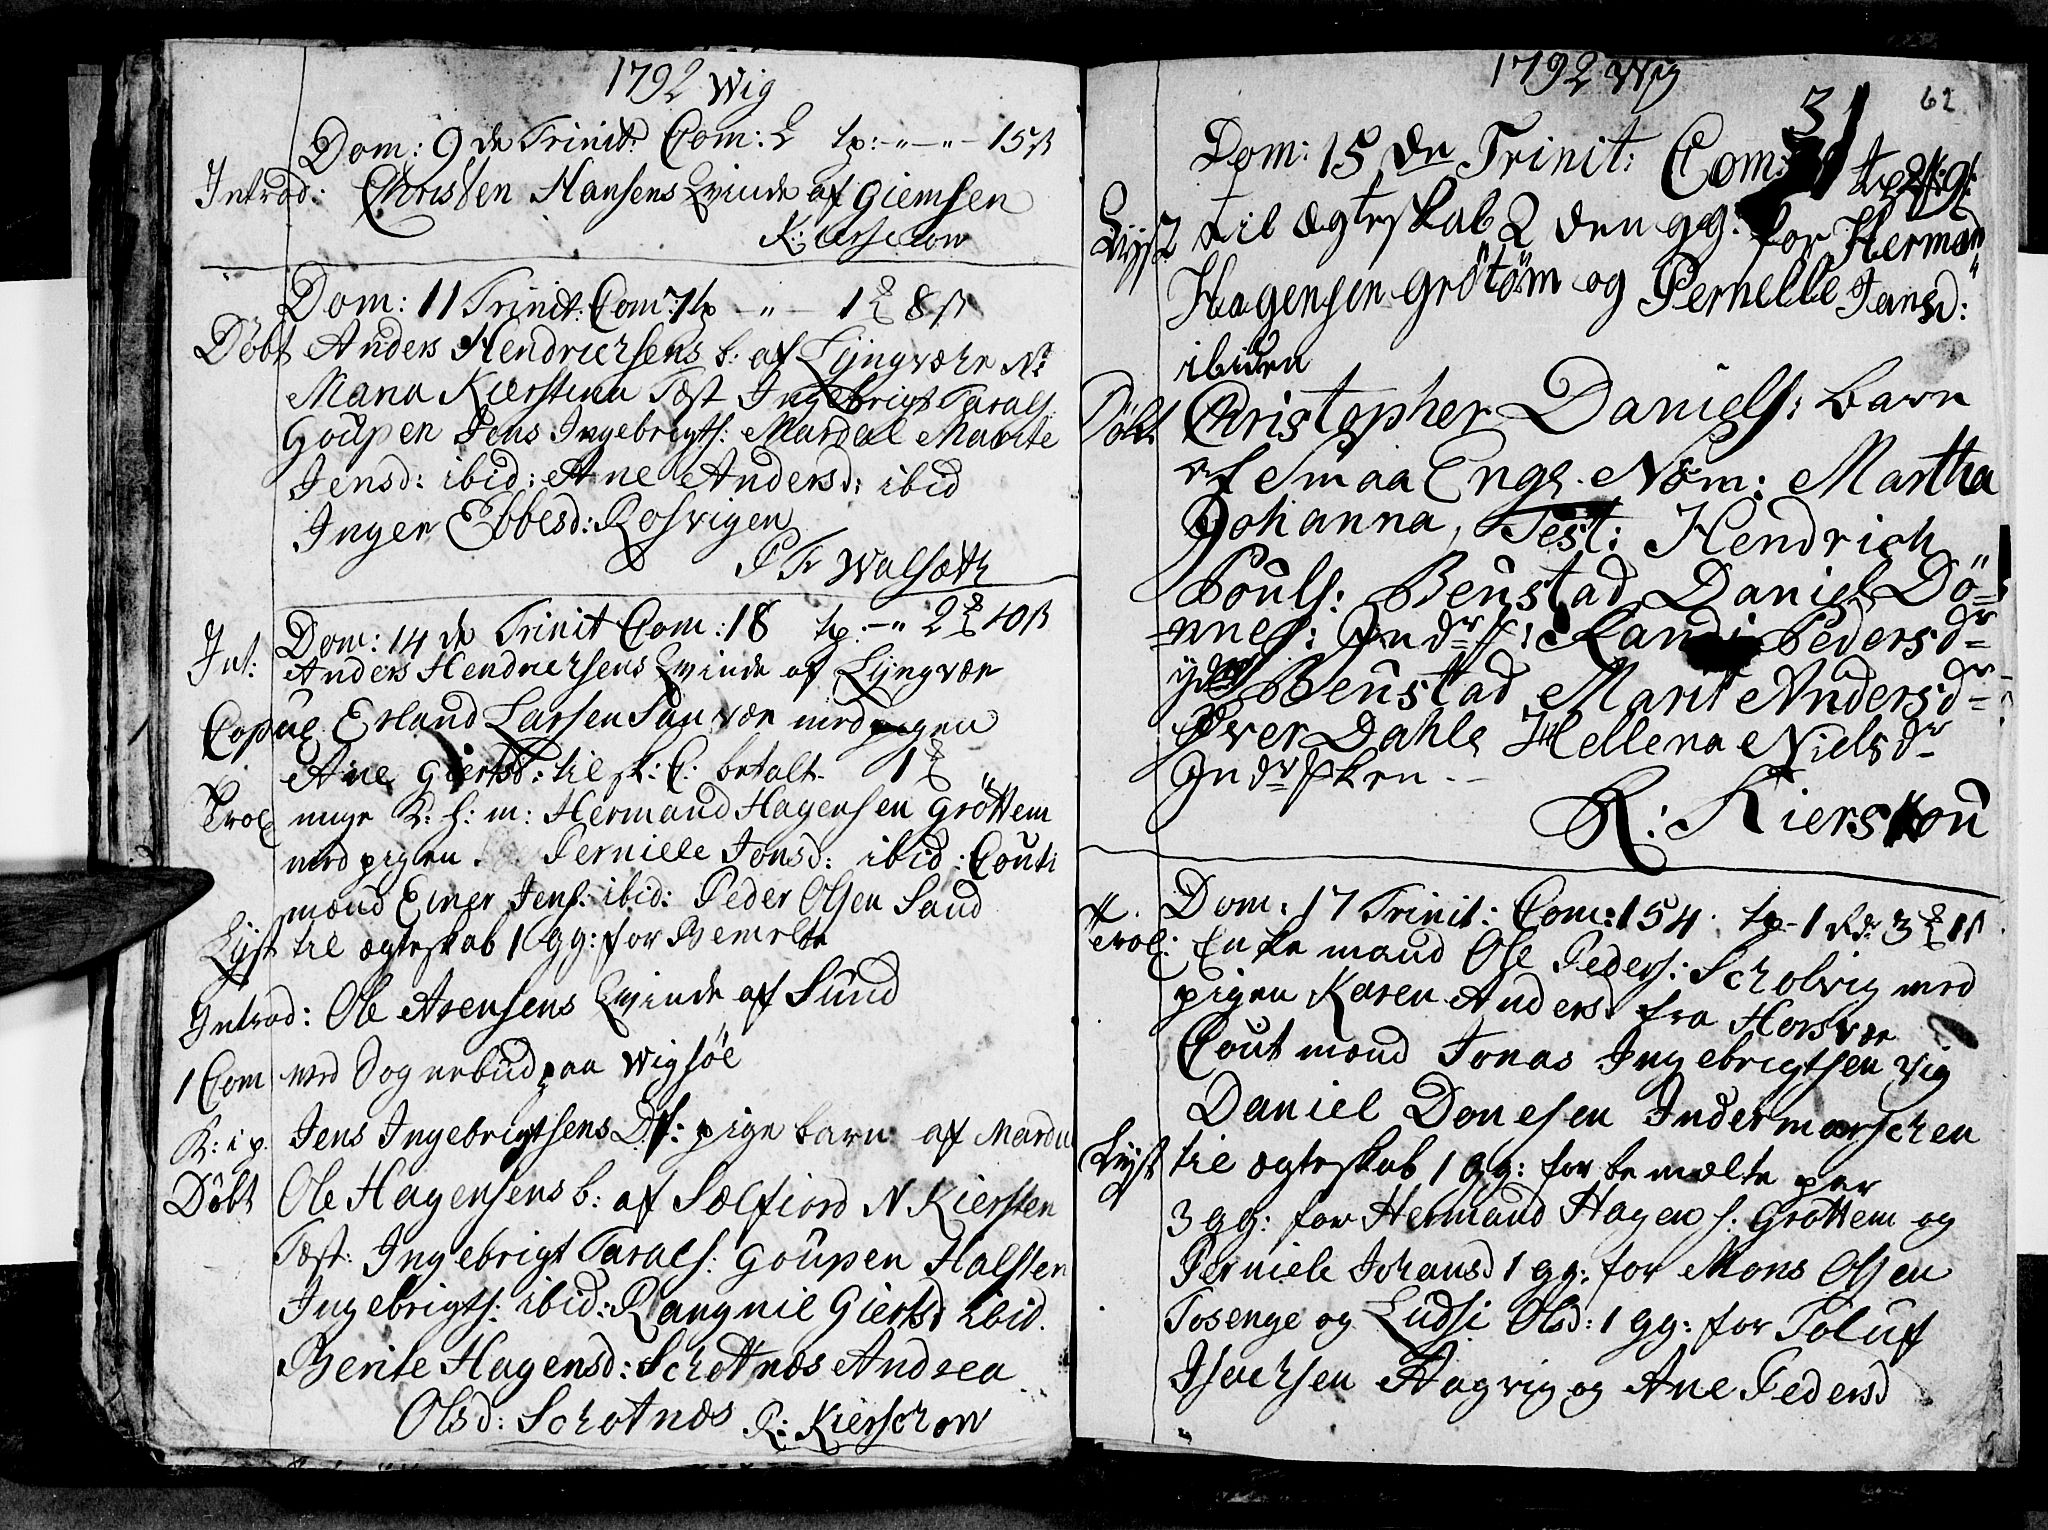 1792 Wig
Dom: 9 de Trinit: Com: 2 tp: -"-"- 15 ß
Introd: Christen Hansens Qvinde af Giemsen
K: ierschow
Dom: 11 Trinit: Com: 1 tp -"- 1 8 ß
Döbt Anders Hendrichsens b: af Lyngvær N:
Mana Kierstena Tæst Ingebrigt Taralf:
Goupen Jens Ingebrigts: Mardal Marite
Jensd: ibid: Ane Andersd: ibid
Inger Ebbesd: Rosvigen
P Fr Walsöth
Dom: 14 de Trinit Com: 18 tp: -" 2 10 ß
Int: Anders Hendrichsens Qvinde af Lyngvær
Copul Erland Larsen Sanvær med pigen
Ane Giertsd: til sk: C: betalt 1
Trol unge K: h: m: Hermand Hagensen Gröttem
med pigen Pernille Jonsd: ibid: Couti
mænd Einer Jens: ibid: Peder Olsen Sand
Lyst til ægteskab 1 gg: for Bemelte
Introd: Ole Arensens Qvinde af Sund
1 Com med Sognebud paa Wigsöe
K: i p. Jens Ingebrigtsens pige barn af Mardal
Döbt Ole Hagensens b: af Sælfiord N Kiersten
Tæst: Ingebrigt Taralf: Goupen Halsten
Ingebrigts: ibid: Rangnil Giertsd ibid.
Berite Hagensd: Schotnæs Andrea
Olsd: Schotnæs R: Kierschow
1792 Wig
62
31
Dom: 15 de Trinit: Com: tp
Lyst til ægteskab 2 den gg: for Herman
Hagensen Grötöm og Pernelle Jansd:
ibiden
Döbt Christopher Daniels: barn
af Smaa Enge. Nom: Martha
Johanna, Test: Hendrich
Pouls: Benstad Daniel Dö-
nnes: Indr Randi Pedersdr
Benstad Marit Andersdr
Över Dahle Hellena Nielsdr
Indr
R: Kierskou
Dom: 17 Trinit: Com: 154. tp - 1 Rdr 3 11
Trol: Enke mand Ole Peders: Scholvig med
pigen Karen Andersd fra Horsvær
Cout mænd Jonas Ingebrigtsen Vig
Daniel Donesen Indermarschen
Lyst til ægteskab 1 gg: for bemælte per
3 gg: for Hermand Hagens: Gröttem og
Perniele Johansd 1 gg: for Mons Olsen
Tosenge og Ludsi Olsd: 1 gg: for Toluf
Isachsen Aagvig og Ane Pedersd